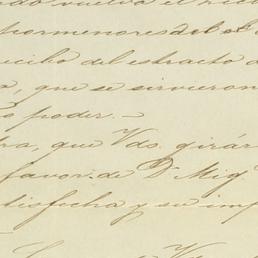 vuelva el
pormenores del
recibo del extracto
que se sirvieron
poder. —
que Vds. girár
favor de Dn. Mig.
tisfecha y su imp